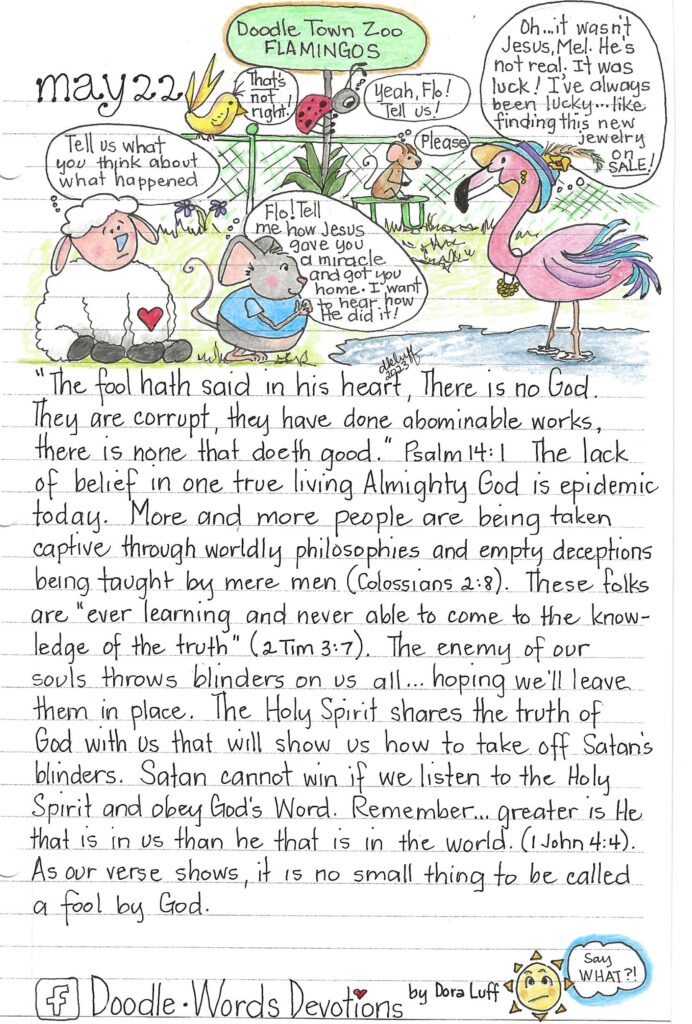 Doodle Town Zoo
FLAMINGOS
may 22
That's
not
right!
Yeah, Flo!
Tell us!
Please
Oh...it wasn't
Jesus, Mel. He's
not real. It was
luck! I've always
been lucky...like
finding this new
jewelry
on
SALE!
Tell us what
you think about
what happened
Flo! Tell
me how Jesus
gave you
a miracle
and got you
home. I want
to hear how
He did it!
dkluff
2023
"The fool hath said in his heart, There is no God.
They are corrupt, they have done abominable works,
there is none that doeth good." Psalm 14:1 The lack
of belief in one true living Almighty God is epidemic
today. More and more people are being taken
captive through worldly philosophies and empty deceptions
being taught by mere men (Colossians 2:8). These folks
are "ever learning and never able to come to the know-
ledge of the truth" (2 Tim 3:7). The enemy of our
souls throws blinders on us all... hoping we'll leave
them in place. The Holy Spirit shares the truth of
God with us that will show us how to take off Satan's
blinders. Satan cannot win if we listen to the Holy
Spirit and obey God's Word. Remember... greater is He
that is in us than he that is in the world. (1 John 4:4).
As our verse shows, it is no small thing to be called
a fool by God.
Say
WHAT?!
f Doodle·Words Devotions by Dora Luff